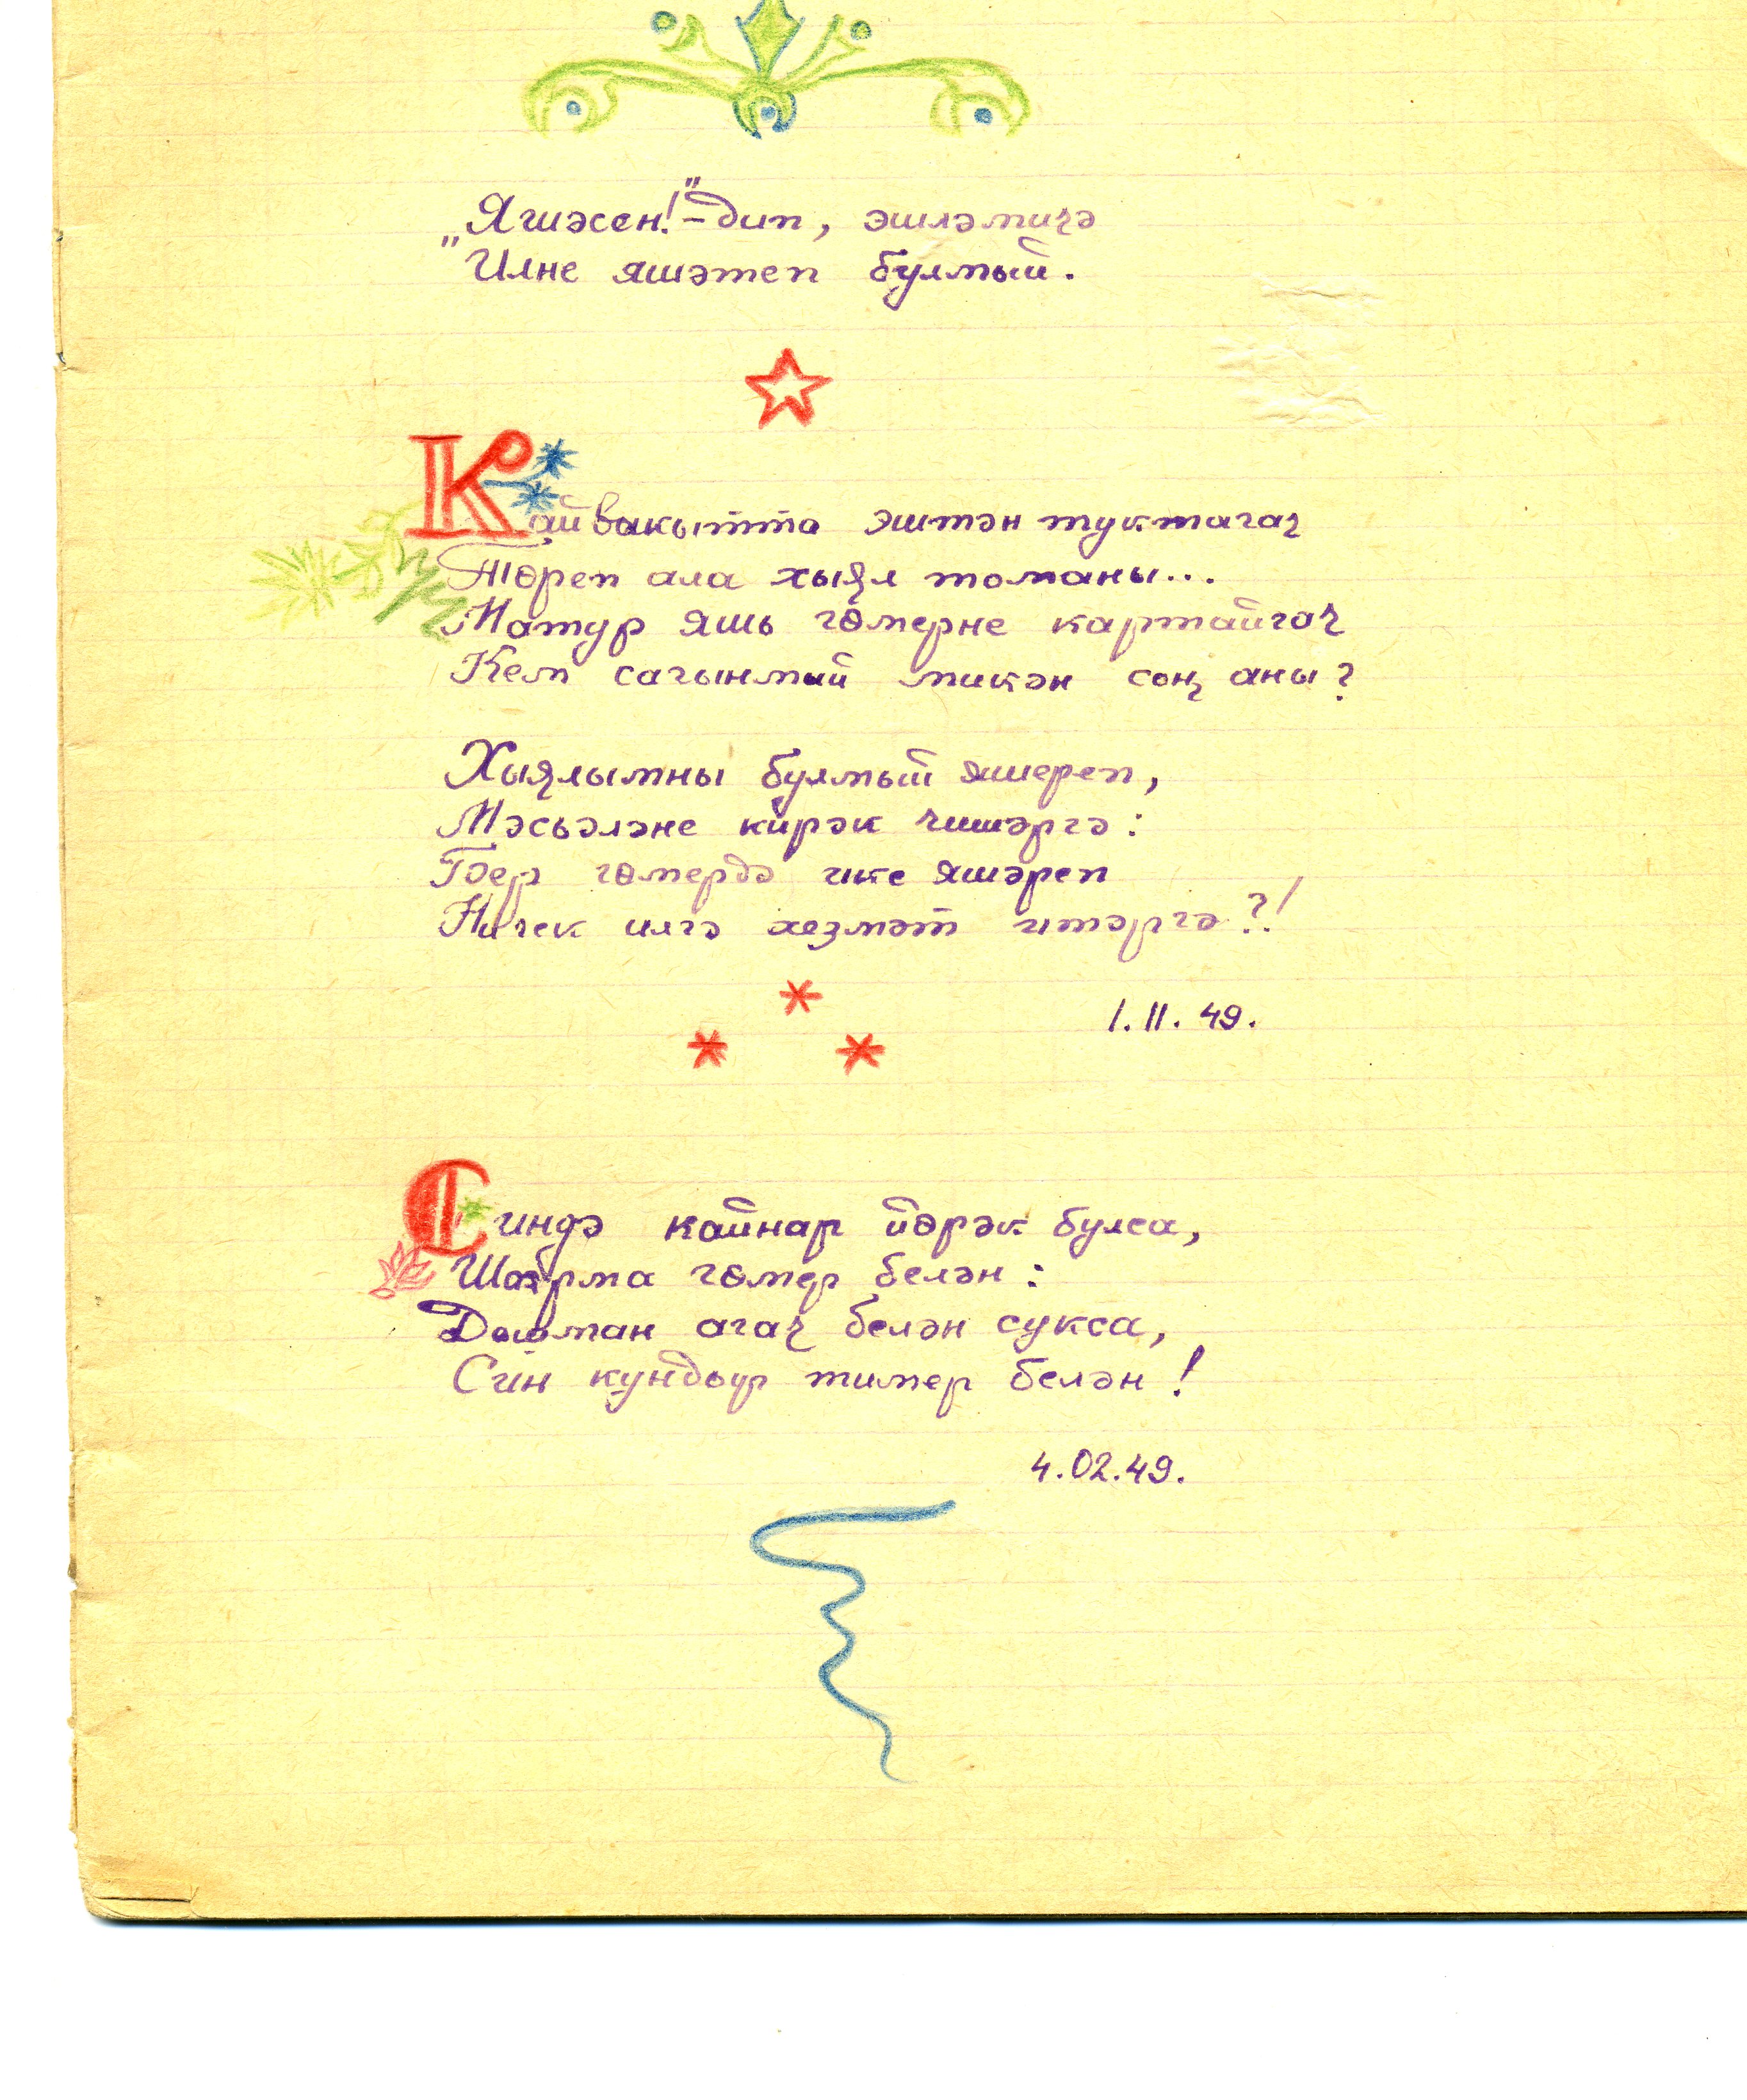 „Яшәсен!"-дип, эшләмичә
"Илне яшәтеп булмый.
Кайвакытта эштән туктагач
Төреп ала хыял томаны...
Матур яшь гөмерне картайгач
Кем сагынмый микән соң аны?
Хыялымны булмый яшереп,
Мәсьәләне кирәк чишәргә:
Бер гөмердә ике яшәреп
Ничек илгә хезмәт итәргә?!
1.II.49.
Синдә кайнар йөрәк булса,
гөмер белән:
Дошман агач белән сукса,
Син кундыр тимер белән!
4.02.49.